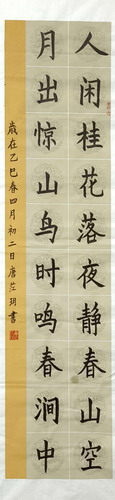 人闲桂花落夜静春山空
月出惊山鸟时鸣春涧中
歳在乙巳春四月初二日唐茳玥書